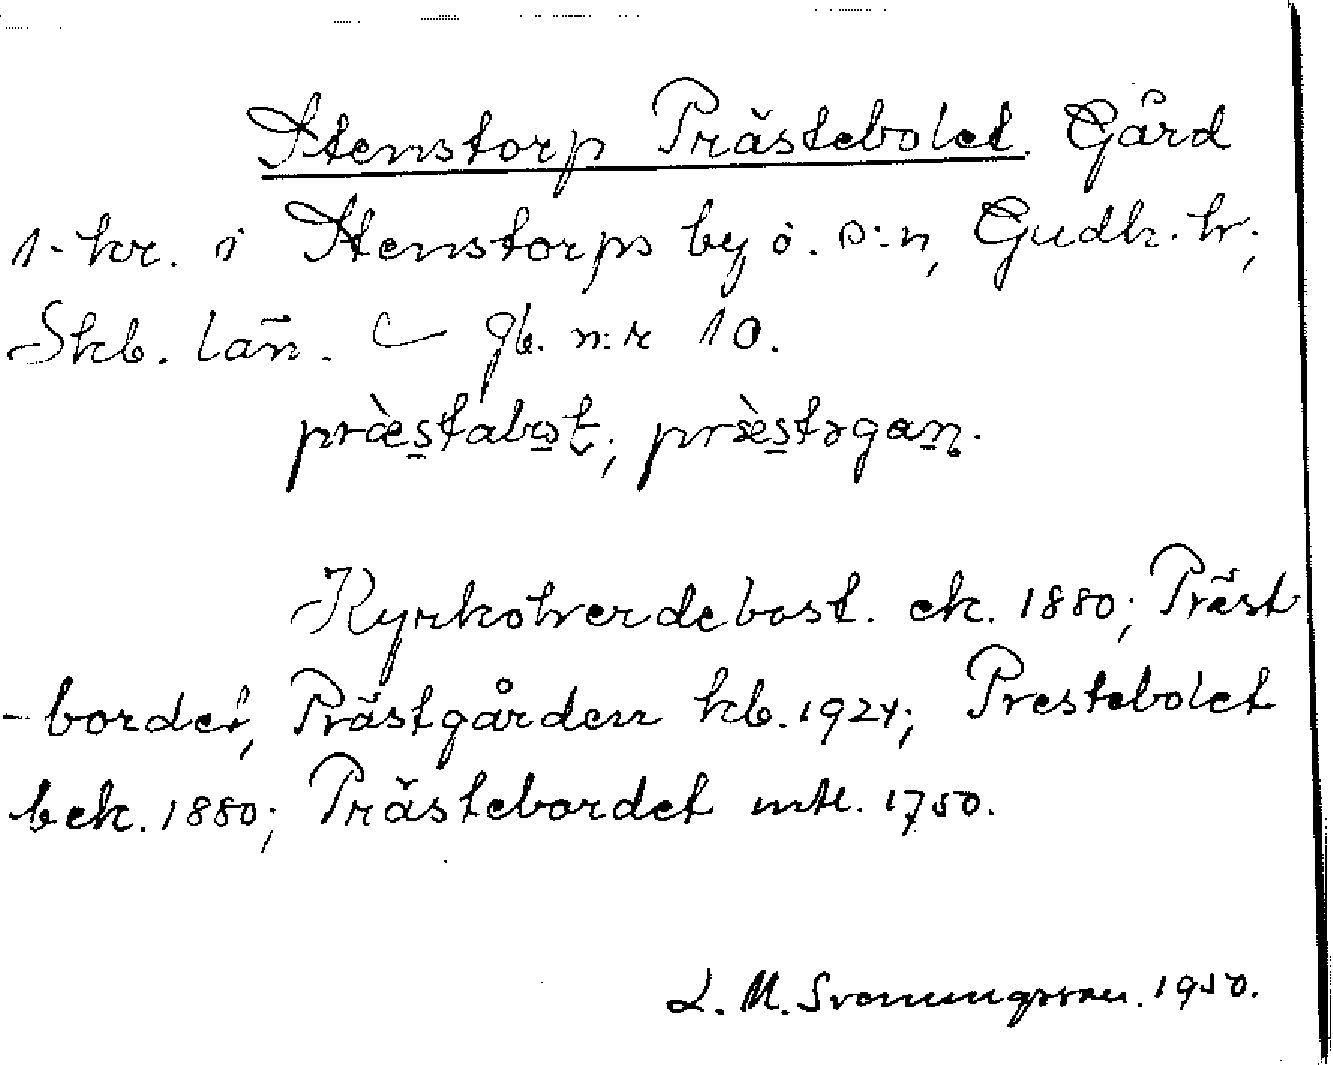 Stenstorp Prästebolet. Gård
1-kr. i Stenstorps by o. s:n, Gudh. hr;
Skb. län. gb. n:r 10.
præstabot; præstəgan.
Kyrkohverdebost. ek. 1880; Präst
-bordet, Prästgården kb. 1924; Prestebolet
bek. 1880; Prästebordet mtl. 1750.
L. M. Svenungsson. 1950.